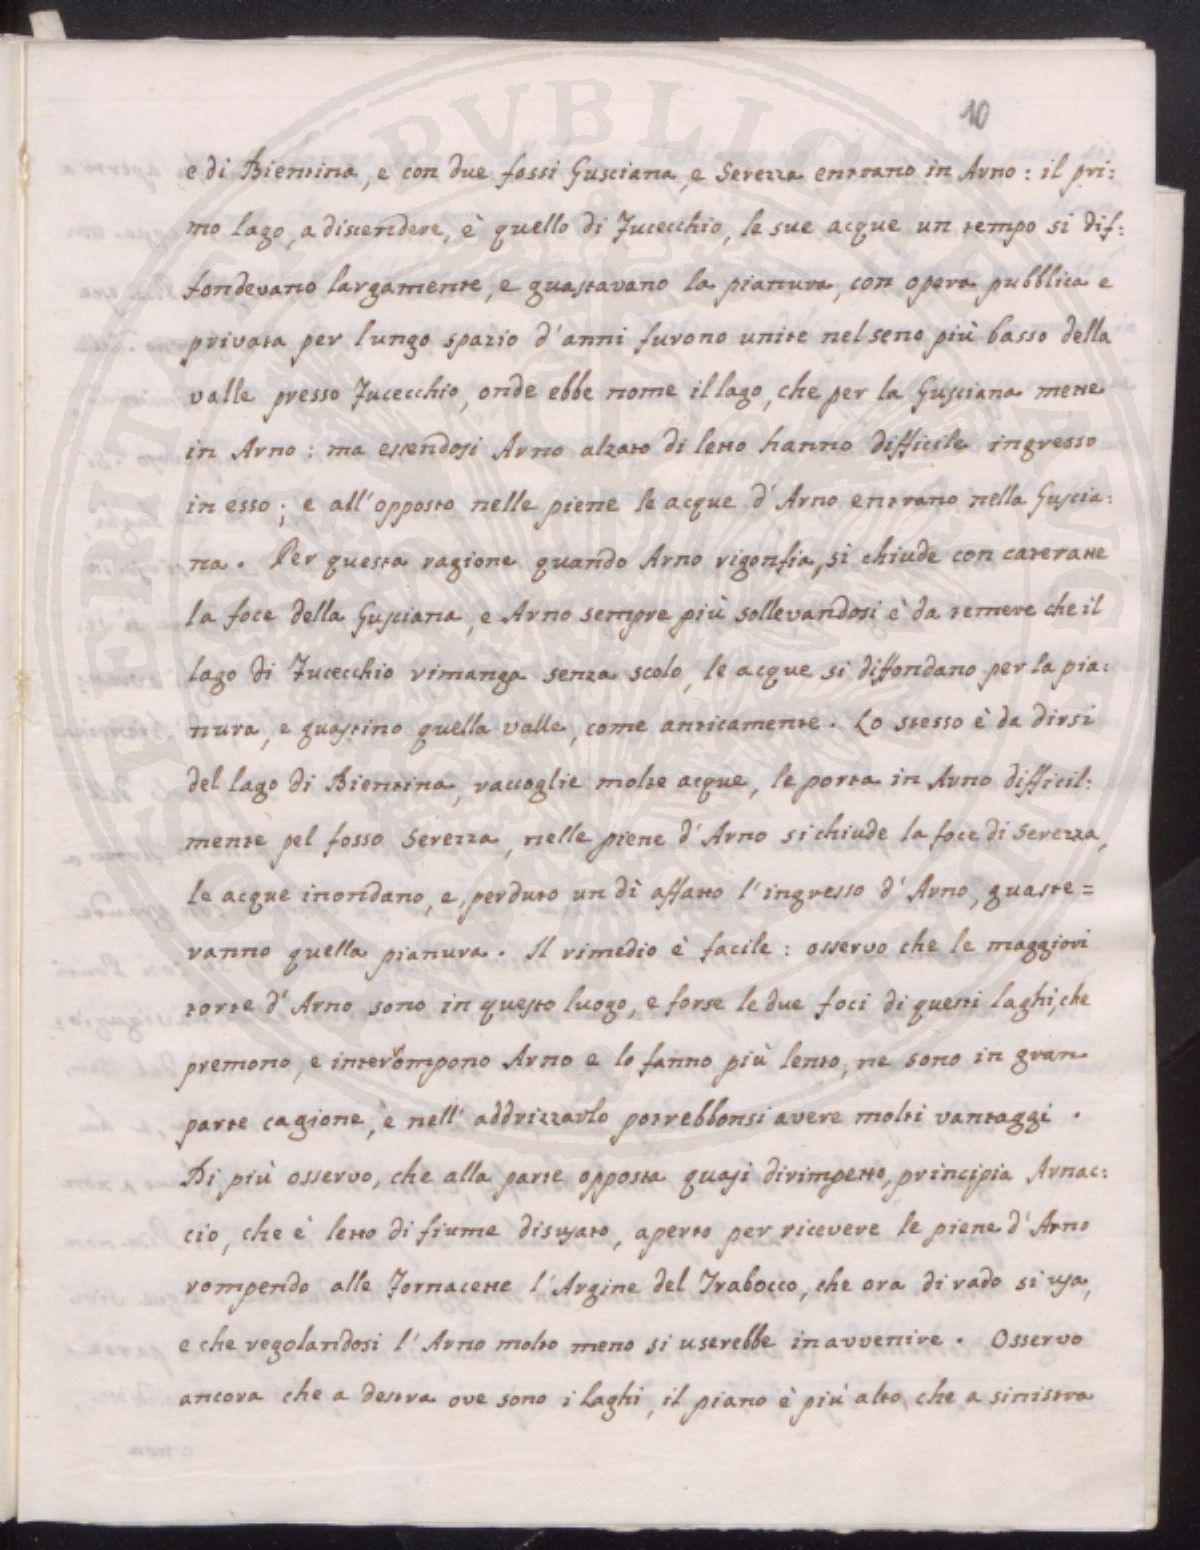 10
e di Bientina, e con due fossi Gusciana, e Serezza entrano in Arno: il pri:
mo lago, a discendere, è quello di Fucecchio, le sue acque un tempo si dif:
fondevano largamente, e guastavano la pianura, con opera pubblica e
privata per lungo spazio d'anni furono unite nel seno più basso della
valle presso Fucecchio, onde ebbe nome il lago, che per la Gusciana mette
in Arno: ma essendosi Arno alzato di letto hanno difficile ingresso
in esso; e all'opposto nelle piene le acque d'Arno entrano nella Guscia:
na. Per questa ragione quando Arno rigonfia, si chiude con cateratte
la foce della Gusciana, e Arno sempre più sollevandosi è da temere che il
lago di Fucecchio rimanga senza scolo, le acque si diffondano per la pia:
nura, e guastino quella valle, come anticamente. Lo stesso è da dirsi
del lago di Bientina, raccoglie molte acque, le porta in Arno difficil:
mente pel fosso Serezza, nelle piene d'Arno si chiude la foce di Serezza,
le acque inondano, e, perduto un dì affatto l'ingresso d'Arno, guaste=
ranno quella pianura. Il rimedio è facile: osservo che le maggiori
torte d'Arno sono in questo luogo, e forse le due foci di questi laghi, che
premono, e interrompono Arno e lo fanno più lento, ne sono in gran
parte cagione, e nell'addrizzarlo potrebbonsi avere molti vantaggi.
Di più osservo, che alla parte opposta quasi dirimpetto, principia Arnac:
cio, che è letto di fiume disusato, aperto per ricevere le piene d'Arno
rompendo alle Fornacette l'Argine del Trabocco, che ora di rado si usa,
e che regolandosi l'Arno molto meno si userebbe in avvenire. Osservo
ancora che a destra ove sono i laghi, il piano è più alto, che a sinistra